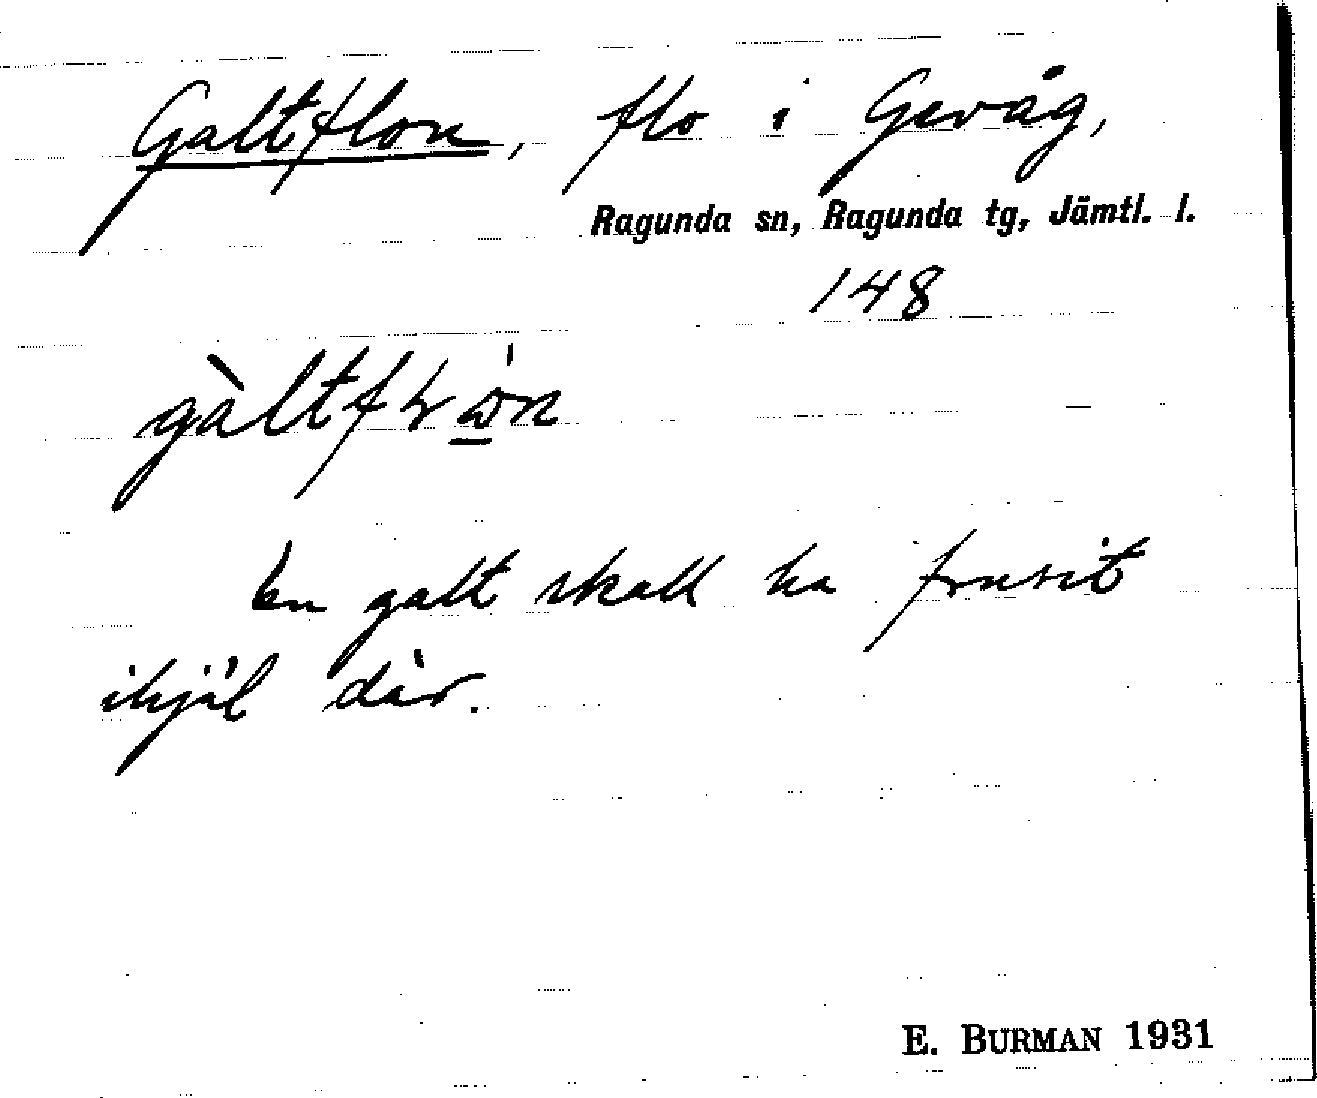 Galtflon, flo i Gevåg,
Ragunda sn, Ragunda tg, Jämtl. l.
148
En galt skall ha frusit
ihjäl där.
E. BURMAN 1931